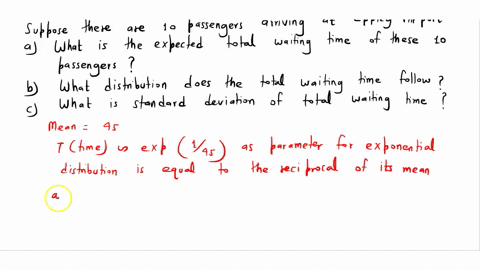 Suppose there are 10 passengers arriving at
a) What is the expected total waiting time of these 10
passengers ?
b) What distribution does the total waiting time follow ?
c) What is standard deviation of total waiting time ?
Mean = 45
T (time) ∽ exp (1/45) as parameter for exponential
distribution is equal to the reciprocal of its mean
a